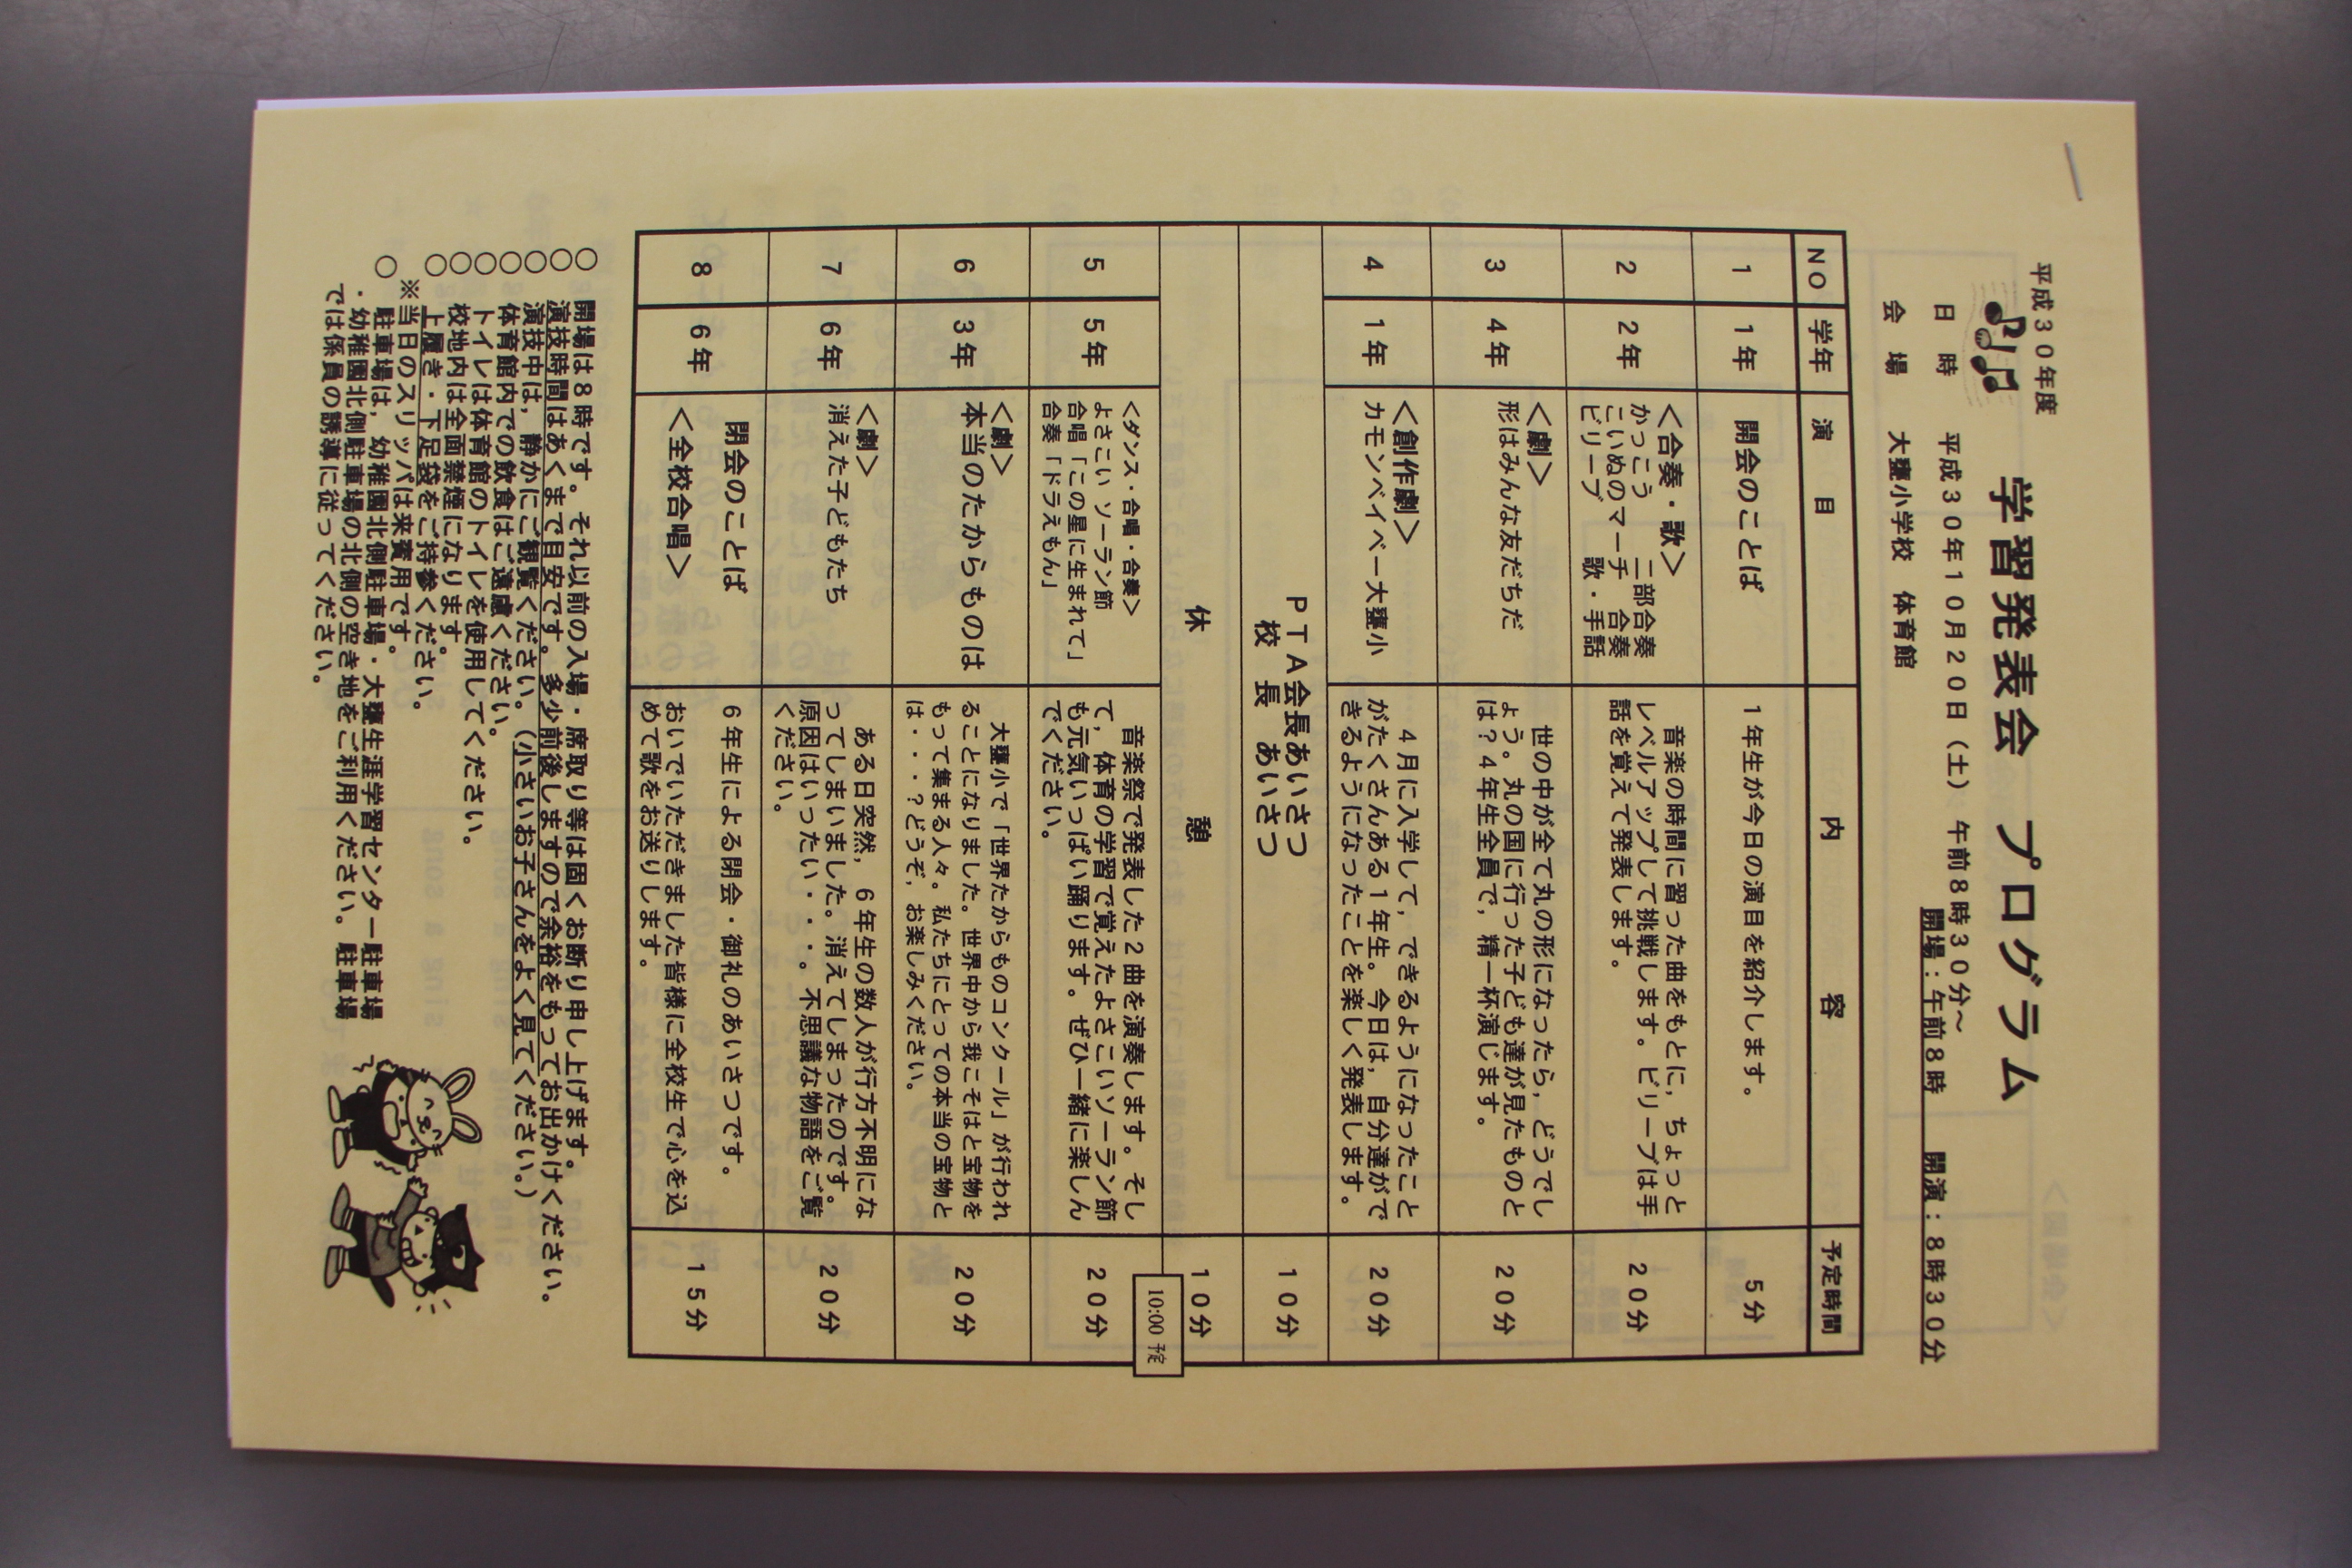 平成３０年度
学習発表会　プログラム
日　時　平成３０年１０月２０日（土）午前８時３０分～
開場：午前８時　　開演：８時３０分
会　場　大甕小学校　体育館
ＮＯ　学年　演　目　内　容　予定時間
１　１年　開会のことば　１年生が今日の演目を紹介します。　５分
２　２年　＜合奏・歌＞
かっこう　　二部合奏
こいぬのマーチ　合奏
ビリーブ　　歌・手話
音楽の時間に習った曲をもとに，ちょっと
レベルアップして挑戦します。ビリーブは手
話を覚えて発表します。
２０分
３　４年　＜劇＞
形はみんな友だちだ
世の中が全て丸の形になったら，どうでし
ょう。丸の国に行った子ども達が見たものと
は？４年生全員で，精一杯演じます。
２０分
４　１年　＜創作劇＞
カモンベイベー大甕小
４月に入学して，できるようになったこと
がたくさんある１年生。今日は，自分達がで
きるようになったことを楽しく発表します。
２０分
ＰＴＡ会長あいさつ
校　長　あいさつ
１０分
休　　憩　１０分
10:00 予定
５　５年　＜ダンス・合唱・合奏＞
よさこい ソーラン節
合唱「この星に生まれて」
合奏「ドラえもん」
音楽祭で発表した２曲を演奏します。そし
て，体育の学習で覚えたよさこいソーラン節
も元気いっぱい踊ります。ぜひ一緒に楽しん
でください。
２０分
６　３年　＜劇＞
本当のたからものは
大甕小で「世界たからものコンクール」が行われ
ることになりました。世界中から我こそはと宝物を
もって集まる人々。私たちにとっての本当の宝物と
は・・・？どうぞ，お楽しみください。
２０分
７　６年　＜劇＞
消えた子どもたち
ある日突然，６年生の数人が行方不明にな
ってしまいました。消えてしまったのです。
原因はいったい・・・。不思議な物語をご覧
ください。
２０分
８　６年　閉会のことば
＜全校合唱＞
６年生による閉会・御礼のあいさつです。
おいでいただきました皆様に全校生で心を込
めて歌をお送りします。
１５分
○　開場は８時です。それ以前の入場・席取り等は固くお断り申し上げます。
○　演技時間はあくまで目安です。多少前後しますので余裕をもってお出かけください。
○　演技中は，静かにご観覧ください。（小さいお子さんをよく見てください。）
○　体育館内での飲食はご遠慮ください。
○　トイレは体育館のトイレを使用してください。
○　校地内は全面禁煙になります。
○　上履き・下足袋をご持参ください。
※当日のスリッパは来賓用です。
○　駐車場は，幼稚園北側駐車場・大甕生涯学習センター駐車場
・幼稚園北側駐車場の北側の空き地をご利用ください。駐車場
では係員の誘導に従ってください。